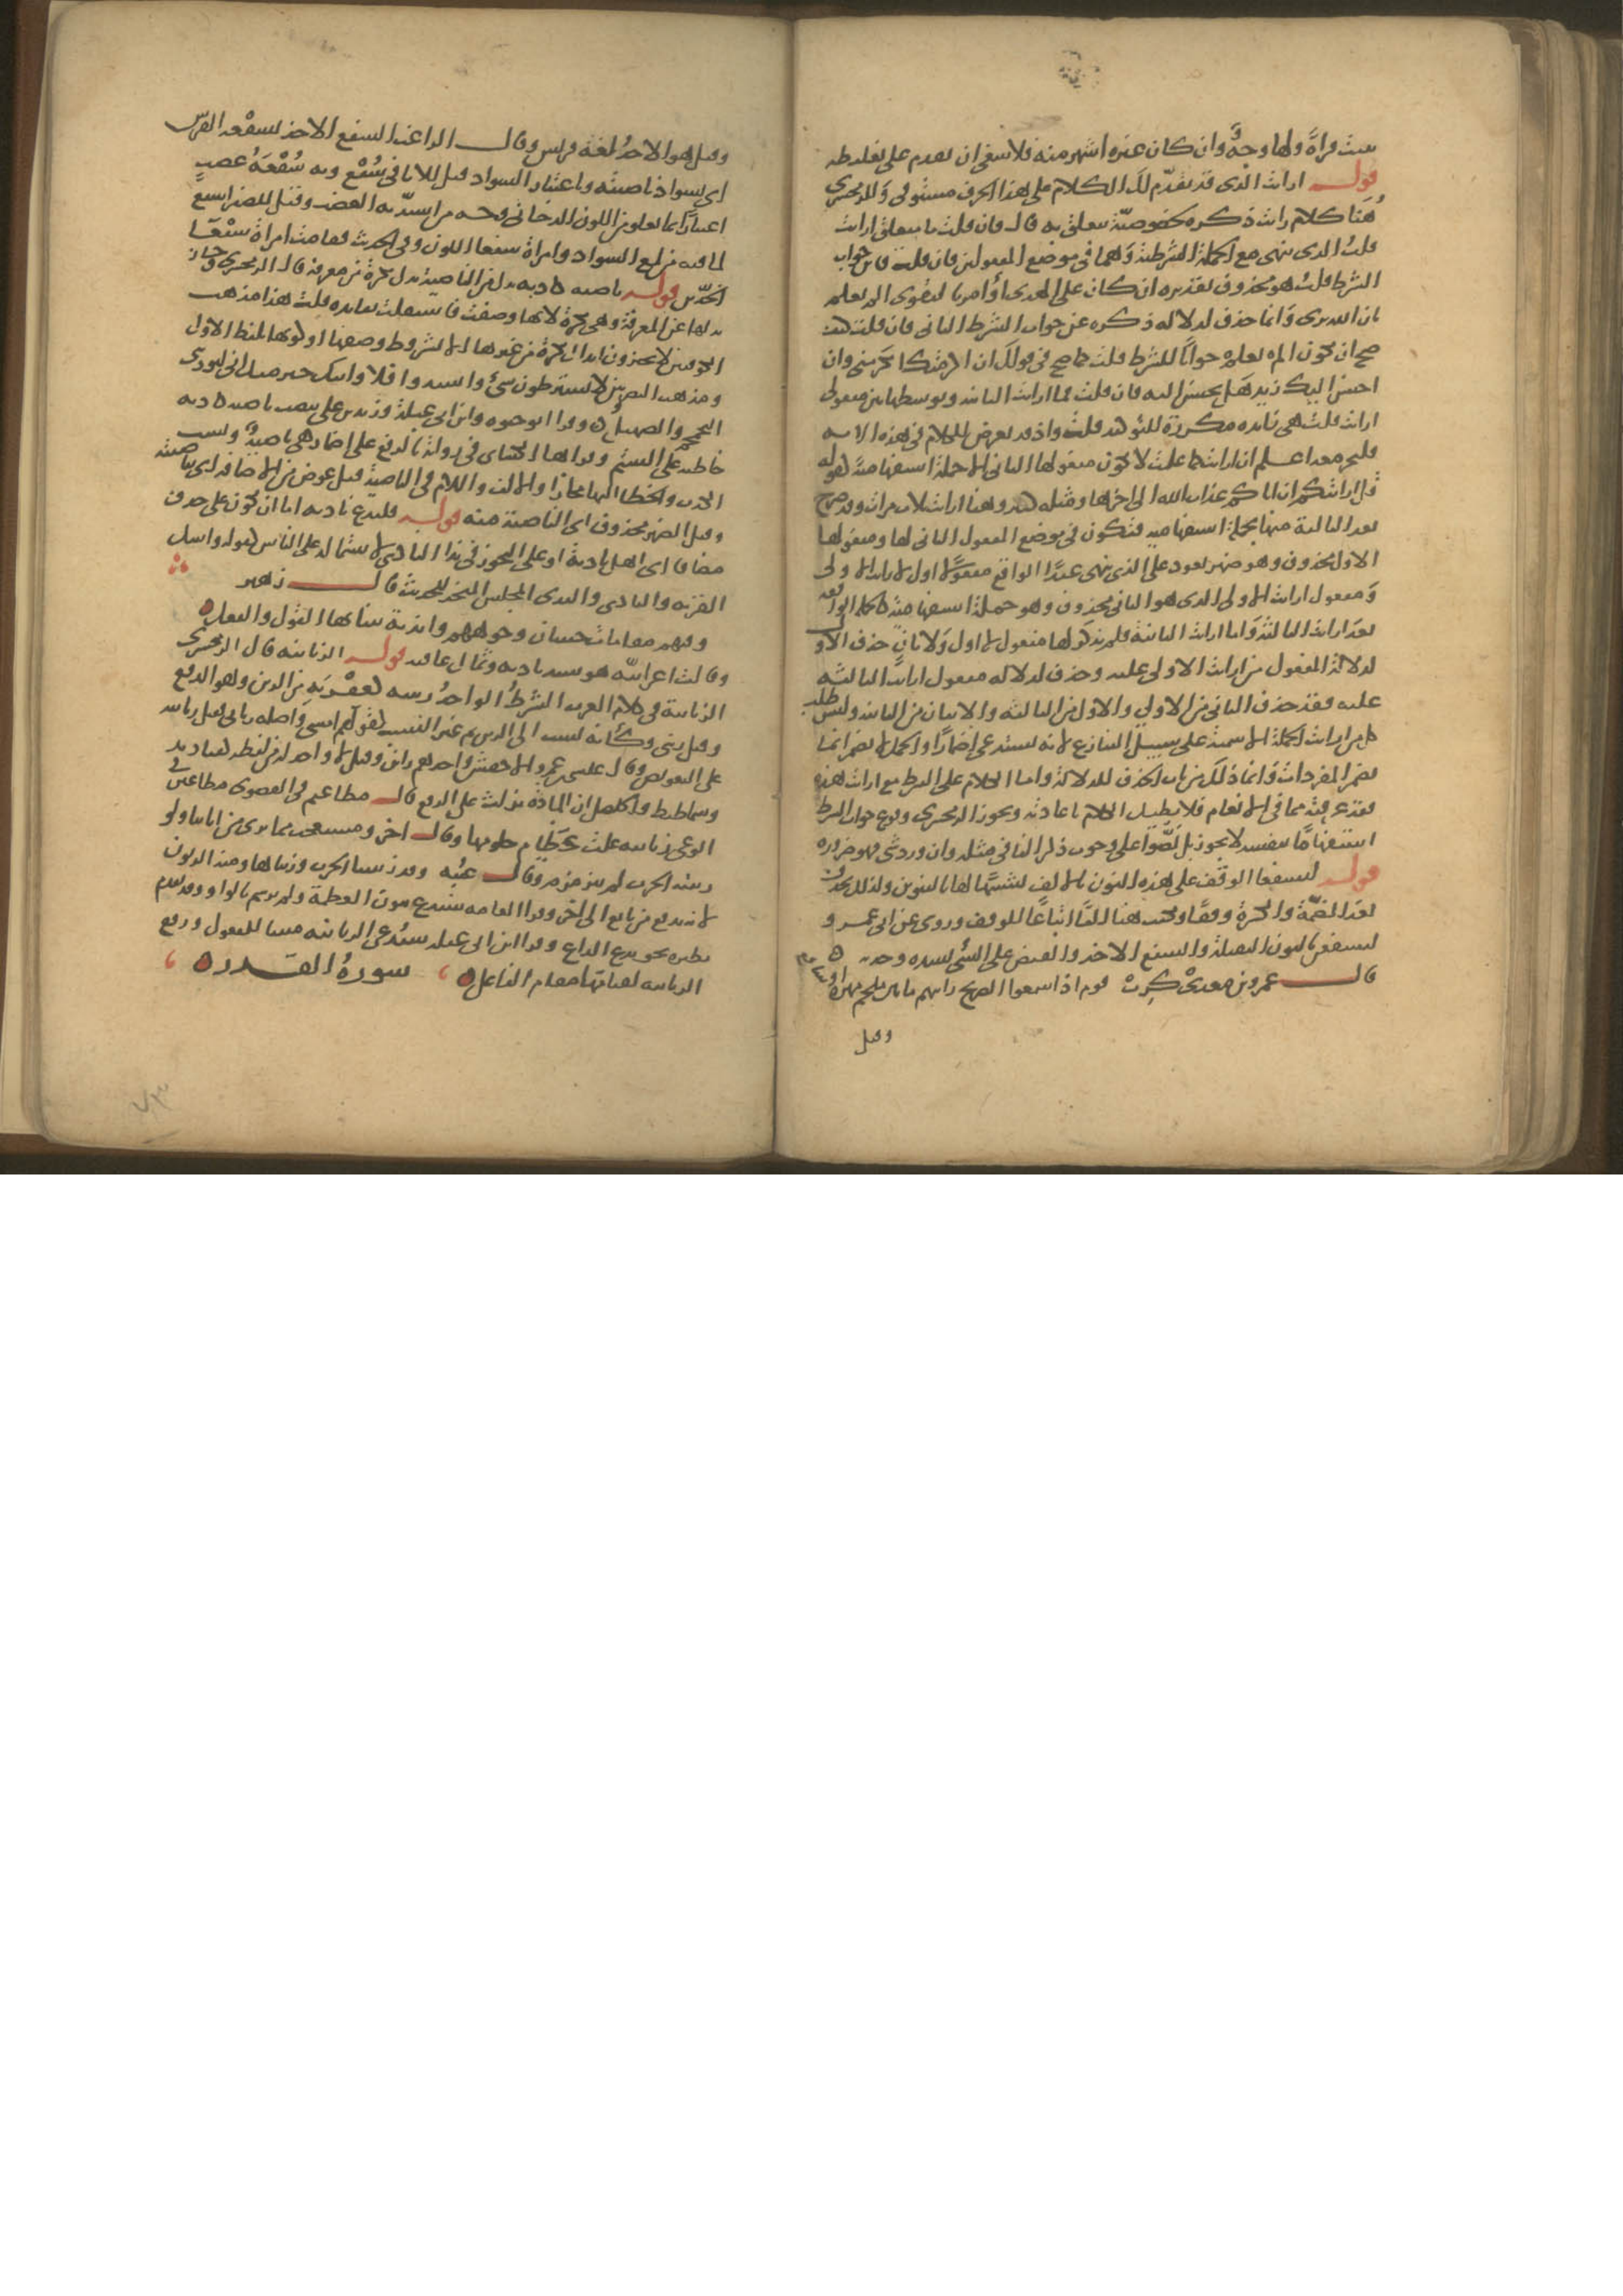 ثبتت قراءة ولها وجه وان كان غيره اشهر منه فلا ينبغي ان يقدم على تغليطه
قوله ارايت الذي قد تقدم لك الكلام على هذا الحرف مستوفى وللزمخشري
هنا كلام رايت ذكره لخصوصية تتعلق به قال فان قلت ما متعلق ارايت
قلت الذي ينهى مع الجملة الشرطية وهما في موضع المفعولين فان قلت فاين جواب
الشرط قلت هو محذوف تقديره ان كان على الهدى او امر بالتقوى الم يعلم
بان الله يرى وانما حذف لدلالة ذكره في جواب الشرط الثاني فان قلت كيف
صح ان يكون الم يعلم جوابا للشرط قلت كما صح في قولك ان اكرمتك اتكرمني وان
احسن اليك زيد هل تحسن اليه فان قلت فما ارايت الثانية وتوسطها بين مفعولي
ارايت قلت هي زايدة مكررة للتوكيد قلت واذ قد تعرض للكلام في هذه الاية
فلنجر معه اعلم ان ارايت كما علمت لا يكون مفعولها الثاني الا جملة استفهامية كقوله
قل ارايتكم ان اتاكم عذاب الله الى اخرها ومثله كثير وهنا ارايت ثلاث مرات وقد صرح
بعد الثالثة منها بجملة استفهامية فتكون في موضع المفعول الثاني لها ومفعولها
الاول محذوف وهو ضمير يعود على الذي ينهى عبدا الواقع مفعولا اول لارايت الاولى
ومفعول ارايت الاولى الذي هو الثاني محذوف وهو جملة استفهامية كالجملة الواقعة
بعد ارايت الثالثة واما ارايت الثانية فلم يذكر لها مفعول لا اول ولا ثان حذف الاول
لدلالة المفعول من ارايت الاولى عليه وحذف لدلالة مفعول ارايت الثالثة
عليه فقد حذف الثاني من الاولى والاول من الثالثة والاثنان من الثانية وليس طلب
كل من ارايت الجملة الاسمية على سبيل التنازع لانه يستدعي اضمارا والجمل لا تضمر انما
تضمر المفردات وانما ذلك من باب الحذف للدلالة واما الكلام على الشرط مع ارايت هذه
فقد عرفته مما في الانعام فلا نطيل الكلام باعادته وتجويز الزمخشري وقوع جواب الشرط
استفهاما بنفسه لا يجوز بل نصوا على وجوب ذكر الفا في مثله وان ورد شي فهو ضرورة
قوله لنسفعا الوقف على هذه النون بالالف لشبهها لها بالتنوين ولذلك يحذف
بعد الضمة والكسرة وقفا وكتب هنا الفا اتباعا للوقف وروي عن ابي عمرو
لنسفعن بالنون الثقيلة والسفع الاخذ والقبض على الشي بشدة وجذبه
قال عمرو بن معدي كرب قوم اذا سمعوا الصريخ رايتهم ما بين ملجم مهره او سافع
وقيل
وقيل هو الاخذ بلغة قريش وقال الراغب السفع الاخذ بسفعة الفرس
اي بسواد ناصيته وباعتبار السواد قيل للاثافي سفع وبه سفعة غضب
اعتبارا بما يعلو من اللون الدخاني وجه من اشتد به الغضب وقيل للصقر اسفع
لما فيه من لمع السواد وامراة سفعا اللون وفي الحديث فقامت امراة سفعا
الخدين قوله ناصية كاذبة بدل من الناصية بدل نكرة من معرفة قال الزمخشري وجاز
بدلها عن المعرفة وهي نكرة لانها وصفت فاستقلت بفايدة قلت هذا مذهب
الكوفيين لا يجيزون ابدال نكرة من غيرها الا بشروط وصفها او كونها بلفظ الاول
ومذهب البصريين لا يشترطون شي وانشدوا فلا وابيك خير منك اني ليؤذيني
التحمحم والصهيل وقرا ابو حيوة وابن ابي عبلة وزيد بن علي بنصب ناصية كاذبة
خاطية على الشتم وقراها الكسائي في رواية بالرفع على اضمار هي ناصية ونسب
الكذب والخطا اليها مجازا والالف واللام في الناصية قيل عوض من الاضافة اي بناصيته
وقيل الضمير محذوف اي الناصية منه قوله فليدع ناديه اما ان يكون على حذف
مضاف اي اهل ناديه او على التجوز في ندا النادي لاشتماله على الناس كقوله واسل
القرية والنادي والندي المجلس المتخذ للحديث قال زهير
وفيهم مقامات حسان وجوههم واندية ينتابها القول والفعل
وقالت اعرابية هو سيد ناديه وثمال عافيه قوله الزبانية قال الزمخشري
الزبانية في كلام العرب الشرط الواحد زبنية كعفرية من الزبن وهو الدفع
وقيل زبني وكانه نسب الى الزبن ثم غير للنسب كقولهم امسي واصله زباني فقيل زبانية
على التعويض وقال عيسى بن عمر والاخفش واحدهم زابن وقيل لا واحد له من لفظه كعباديد
وشماطيط والحاصل ان المادة تدل على الدفع قال مطاعيم في القصوى مطاعين في
الوغى زبانية غلب عظام حلومها وقال اخر ومستعجب مما يرى من اناتنا ولو
زبنته الحرب لم يترمرم وقال عتبة وقد زبنتنا الحرب وزبناها ومنه الزبون
لانه يدفع من بايع الى اخر وقرا العامة سندع بنون العظمة ولم يرسم بالواو وقد تقدم
نظيره نحو يدع الداع وقرا ابن ابي عبلة سيدعى الزبانية مبنيا للمفعول ورفع
الزبانية لقيامها مقام الفاعل سورة القدر
٧٣